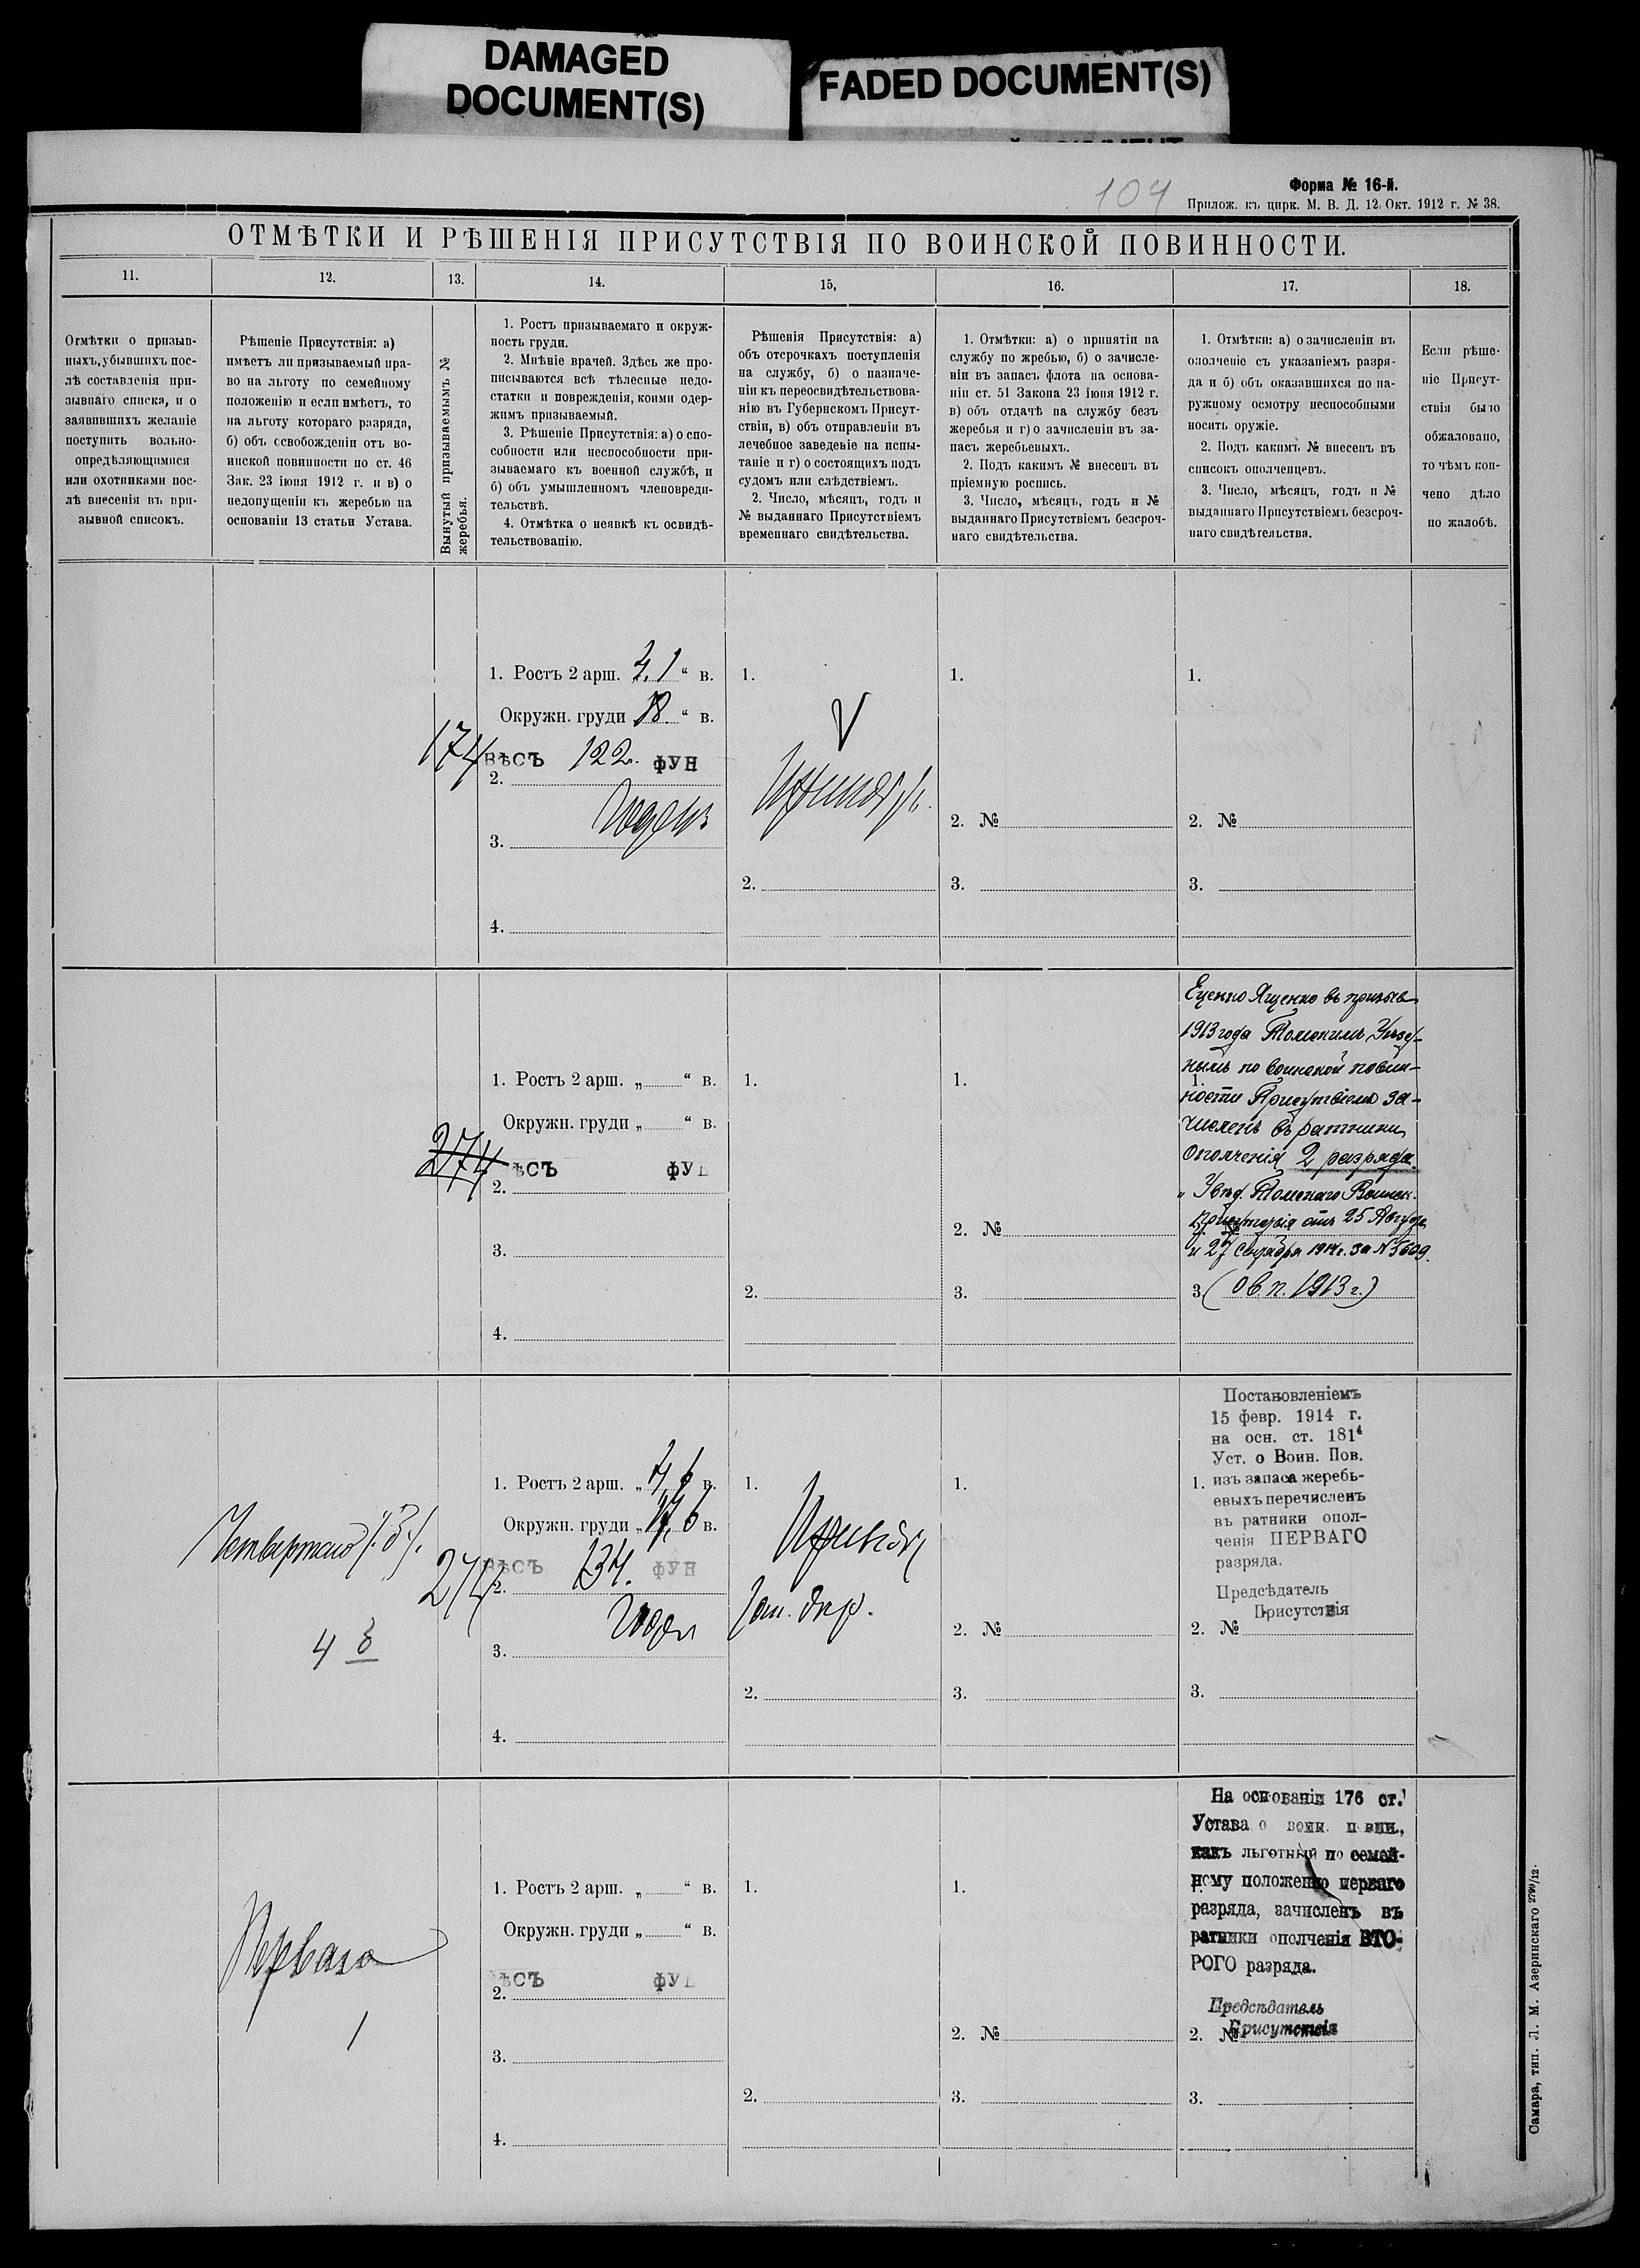 DAMAGED
DOCUMENT(S)
FADED DOCUMENT(S)
104
Форма № 16-й.
Прилож. къ цирк. М. В. Д. 12 Окт. 1912 г. № 38.
ОТМѢТКИ И РѢШЕНІЯ ПРИСУТСТВІЯ ПО ВОИНСКОЙ ПОВИННОСТИ.
11.
12.
13.
14.
15,
16.
17.
18.
Отмѣтки о призыв-
ныхъ, убывшихъ пос-
лѣ составленія при-
зывнаго списка, и о
заявившихъ желаніе
поступить вольно-
опредѣляющимися
или охотниками пос-
лѣ внесенія въ при-
зывной списокъ.
Рѣшеніе Присутствія: а)
имѣетъ ли призываемый пра-
во на льготу по семейному
положенію и если имѣетъ, то
на льготу котораго разряда,
б) объ освобожденіи отъ во-
инской повинности по ст. 46
Зак. 23 іюня 1912 г. и в) о
недопущеніи къ жеребью на
основаніи 13 статьи Устава.
Вынутый призываемымъ №
жеребья.
1. Ростъ призываемаго и окруж-
ность груди.
2. Мнѣніе врачей. Здѣсь же про-
писываются всѣ тѣлесные недо-
статки и поврежденія, коими одер-
жимъ призываемый.
3. Рѣшеніе Присутствія: а) о спо-
собности или неспособности при-
зываемаго къ военной службѣ, и
б) объ умышленномъ членовреди-
тельствѣ.
4. Отмѣтка о неявкѣ къ освидѣ-
тельствованію.
Рѣшенія Присутствія: а)
объ отсрочкахъ поступленія
на службу, б) о назначе-
ніи къ переосвидѣтельствова-
нію въ Губернскомъ Присут-
ствіи, в) объ отправленіи въ
лечебное заведеніе на испы-
таніе и г) о состоящихъ подъ
судомъ или слѣдствіемъ.
2. Число, мѣсяцъ, годъ и
№ выданнаго Присутствіемъ
временнаго свидѣтельства.
1. Отмѣтки: а) о принятіи на
службу по жребью, б) о зачисле-
ніи въ запасъ флота на основа-
ніи ст. 51 Закона 23 іюня 1912 г.
в) объ отдачѣ на службу безъ
жеребья и г) о зачисленіи въ за-
пасъ жеребьевыхъ.
2. Подъ какимъ № внесенъ въ
пріемную роспись.
3. Число, мѣсяцъ, годъ и №
выданнаго Присутствіемъ безсроч-
наго свидѣтельства.
1. Отмѣтки: а) о зачисленіи въ
ополченіе съ указаніемъ разря-
да и б) объ оказавшихся по на-
ружному осмотру неспособными
носить оружіе.
2. Подъ какимъ № внесенъ въ
списокъ ополченцевъ.
3. Число, мѣсяцъ, годъ и №
выданнаго Присутствіемъ безсроч-
наго свидѣтельства.
Если рѣше-
ніе Присут-
ствія было
обжаловано,
то чѣмъ кон-
чено дѣло
по жалобѣ.
174
1. Ростъ 2 арш. 4.1 " в.
Окружн. груди 18 " в.
ВѢСЪ 122. ФУН
2.
Годенъ
3.
4.
1.
V
2.
1.
2. №
3.
1.
2. №
3.
274
1. Ростъ 2 арш. „ " в.
Окружн. груди „ " в.
ѢСЪ ФУ
2.
3.
4.
1.
2.
1.
2. №
3.
Еценко Ященко въ призывъ
1913 года Томскимъ Уѣзд-
нымъ по воинской повин-
1.
ности Присутствіемъ за-
численъ въ ратники
Ополченія 2 разряда.
" Увѣд. Томскаго Воинск.
Присутствія отъ 25 Августа
и 27 Сентября 1914 г. за № 5609.
3. (ов. п. 1913 г.)
Четвертаго /.3/.
4 3
274
1. Ростъ 2 арш. „ 4,6 в.
Окружн. груди „ 17,6 в.
ВѢСЪ 134. ФУН
2.
Годен
3.
4.
1.
2.
1.
2. №
3.
Постановленіемъ
15 февр. 1914 г.
на осн. ст. 181⁴
Уст. о Воин. Пов.
1. изъ запаса жеребь-
евыхъ перечисленъ
въ ратники опол-
ченія ПЕРВАГО
разряда.
Предсѣдатель
Присутствія
2. №
3.
Перваго
1
1. Ростъ 2 арш. „ " в.
Окружн. груди „ " в.
ѢСЪ ФУ
2.
3.
4.
1.
2.
1.
2. №
3.
На основаніи 176 ст.
Устава о воин. п вин.,
какъ льготный по семей-
ному положенію перваго
разряда, зачисленъ въ
ратники ополченія ВТО-
РОГО разряда.
Предсѣдатель
Присутствія
2. №
3.
Самара, тип. Л. М. Азеринскаго 2799/12.